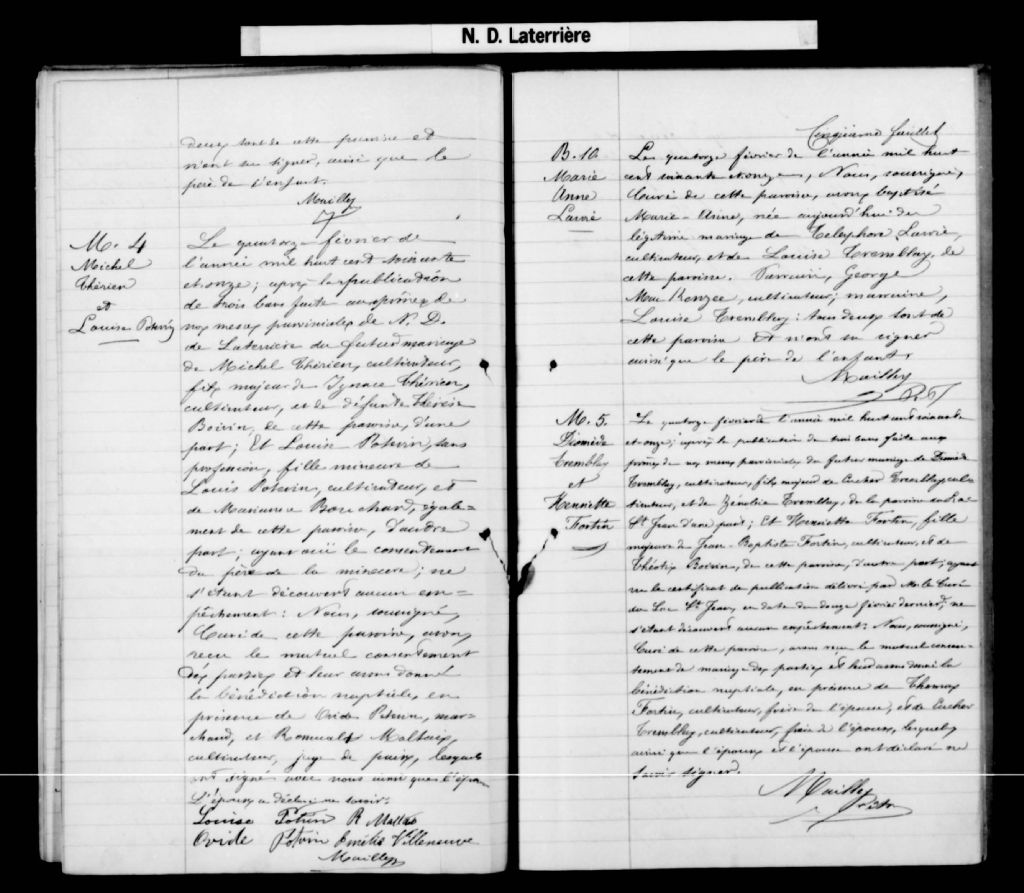 N. D. Laterrière
deux sont de cette paroisse et
n'ont su signer, ainsi que le
père de l'enfant.
Mailley
M. 4
Michel
Thérien
et
Louise Potvin
Le quatorze février de
l'année mil huit cent soixante
et onze; après la publication
de trois bans faite aux prônes de
nos messes paroissiales de N. D.
de Laterrière du futur mariage
de Michel Thérien, cultivateur,
fils majeur de Ignace Thérien,
cultivateur, et de défunte Thérèse
Boivin, de cette paroisse, d'une
part; Et Louise Potvin, sans
profession, fille mineure de
Louis Potvin, cultivateur, et
de Marianne Bouchard, égale-
ment de cette paroisse, d'autre
part; ayant ouï le consentement
du père de la mineure; ne
s'étant découvert aucun em-
pêchement: Nous, soussigné,
Curé de cette paroisse, avons
reçu le mutuel consentement
des parties et leur avons donné
la bénédiction nuptiale, en
présence de Ovide Potvin, mar-
chand, et Romuald Maltais,
cultivateur, juge de paix, lesquels
ont signé avec nous ainsi que l'épouse
L'époux a déclaré ne savoir.
Louise Potvin R Maltais
Ovide Potvin Emélie Villeneuve
Mailley
Cinquième feuillet
B. 10
Marie
Anne
Lavoie
Le quatorze février de l'année mil huit
cent soixante et onze, Nous, soussigné,
Curé de cette paroisse, avons baptisé
Marie-Anne, née aujourd'hui du
légitime mariage de Télesphore Lavoie,
cultivateur, et de Louise Tremblay, de
cette paroisse. Parrain, George
cultivateur; marraine,
Louise Tremblay: tous deux sont de
cette paroisse et n'ont su signer
ainsi que le père de l'enfant.
Mailley
M. 5.
Diomède
Tremblay
et
Henriette
Fortin
Le quatorze février de l'année mil huit cent soixante
et onze; après la publication de trois bans faite aux
prônes de nos messes paroissiales du futur mariage de Diomède
Tremblay, cultivateur, fils majeur de Eucher Tremblay, cul-
tivateur, et de Zénobie Tremblay, de la paroisse du Lac
St Jean d'une part; Et Henriette Fortin, fille
majeure de Jean-Baptiste Fortin, cultivateur, et de
Boivin, de cette paroisse, d'autre part; ayant
vu le certificat de publication délivré par Mr le Curé
du Lac St Jean, en date du douze février dernier, ne
s'étant découvert aucun empêchement: Nous, soussigné,
Curé de cette paroisse, avons reçu le mutuel consen-
tement de mariage des parties et leur avons donné la
bénédiction nuptiale, en présence de Thomas
Fortin, cultivateur, frère de l'épouse, et de Eucher
Tremblay, cultivateur, frère de l'époux, lesquels
ainsi que l'époux et l'épouse ont déclaré ne
savoir signer.
Mailley
Ptre